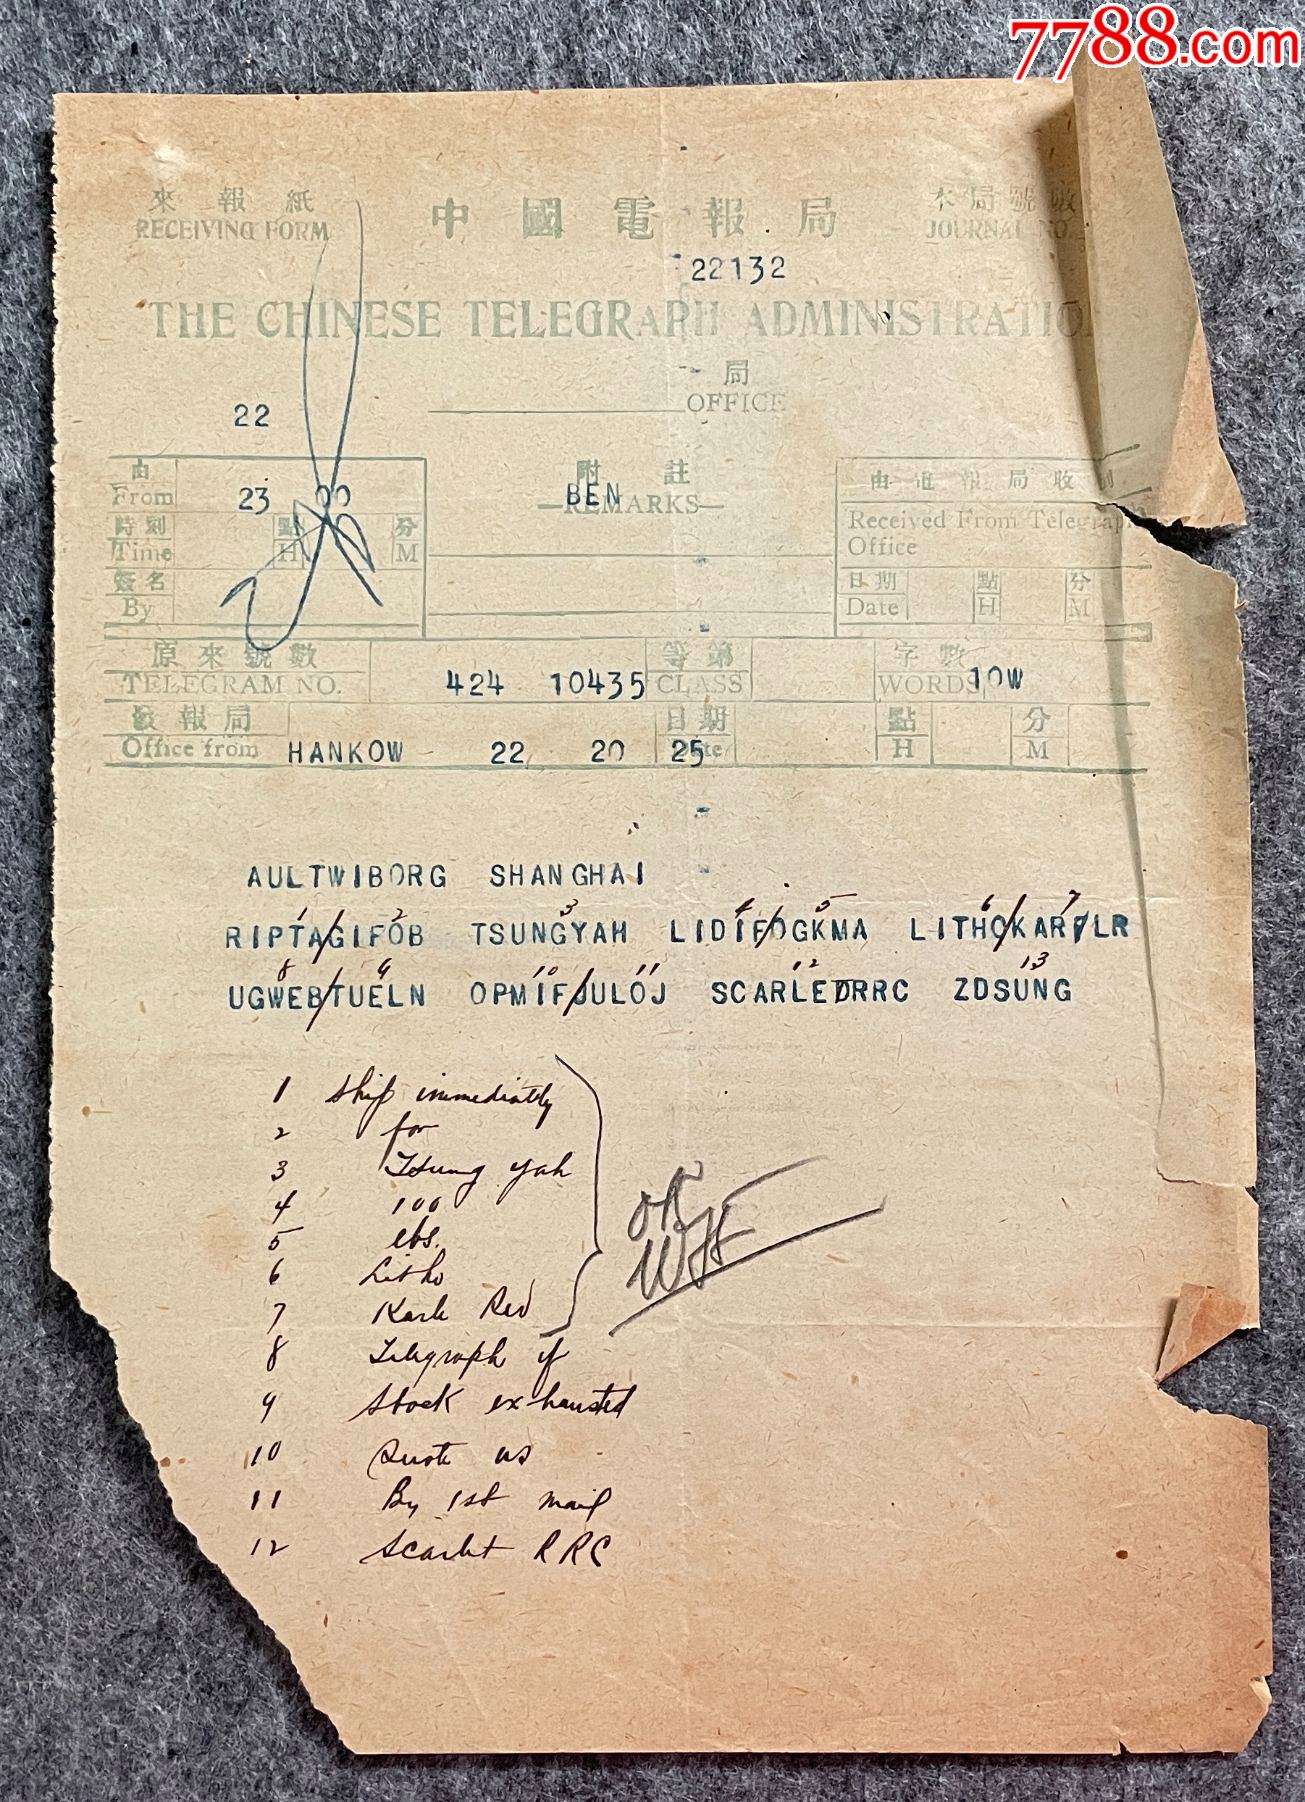 7788.com
來報紙 中國電報局 本局號數
RECEIVING FORM JOURNAL NO
22132
THE CHINESE TELEGRAPH ADMINISTRATION
局
22 OFFICE
由 附註
From 23 00 BEN REMARKS
時刻 點 分 Received From Telegraph
Time H M Office
簽名 日期 點 分
By Date H M
原來號數 等第 字數
TELEGRAM NO. 424 10435 CLASS WORDS 10W
發報局 日期 點 分
Office from HANKOW 22 20 25 Date H M
AULTWIBORG SHANGHAI
1 2 3 4 5 6 7
RIPTAGIFOB TSUNGYAH LIDIFOGKMA LITHOKARFLR
8 9 10 11 12 13
UGWEBTUELN OPMIFJULOJ SCARLEDRRC ZDSUNG
1 Ship immediately
2 for
3 Tsung yah
4 100
5 lbs.
6 Litho
7 Karle Red
OK
8 Telegraph if
9 Stock exhausted
10 Quote us
11 By 1st mail
12 Scarlet RRC